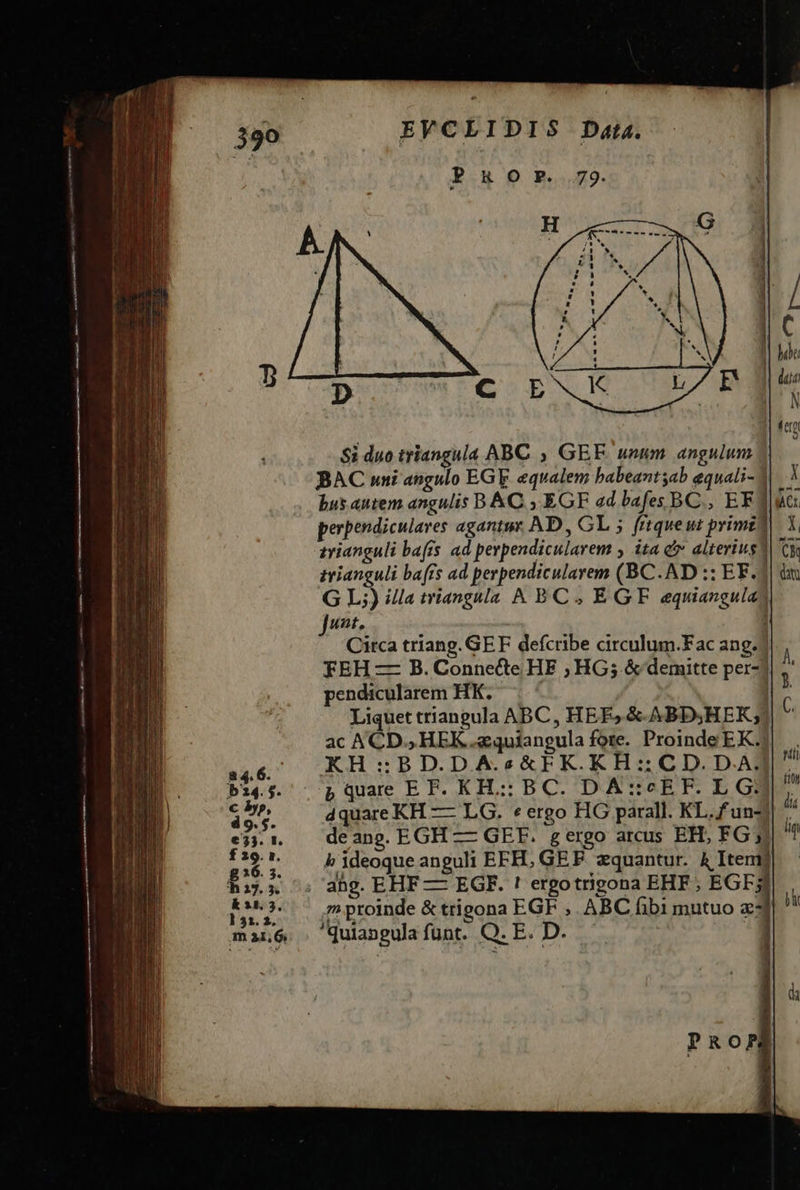 390 EVCLIDIS Data.
PROP. 79.
A H G
B D C E K L F
Si duo triangula ABC , GEF unum angulum
BAC uni angulo EGF æqualem habeant; ab æquali-
bus autem angulis BAC , EGF ad bases BC , EF
perpendiculares agantur AD, GL ; sitque ut primi
trianguli basis ad perpendicularem , ita & alterius
trianguli basis ad perpendicularem (BC.AD :: EF.
GL;) illa triangula ABC , EGF æquiangula
sunt.
Circa triang. GEF describe circulum. Fac ang.
FEH == B. Connecte HF , HG; & demitte per-
pendicularem HK.
Liquet triangula ABC, HEF, & ABD, HEK,
ac ACD, HFK æquiangula fore. Proinde EK.
a 4. 6. KH :: BD. DA. a & FK. KH :: CD. DA.
b 24. 5. b quare EF. KH :: BC. DA :: c EF. LG.
c hyp. d quare KH == LG. e ergo HG parall. KL. f un-
d 9. 5.
e 33. 1. de ang. EGH == GEF. g ergo arcus EH, FG,
f 29. 1. h ideoque anguli EFH, GEF æquantur. k Item
g 26. 3.
h 27. 3. ang. EHF == EGF. l ergo trigona EHF , EGF;
k 21. 3. m proinde & trigona EGF , ABC sibi mutuo æ-
l 32. 1.
m 21. 6. quiangula sunt. Q. E. D.
PROP.